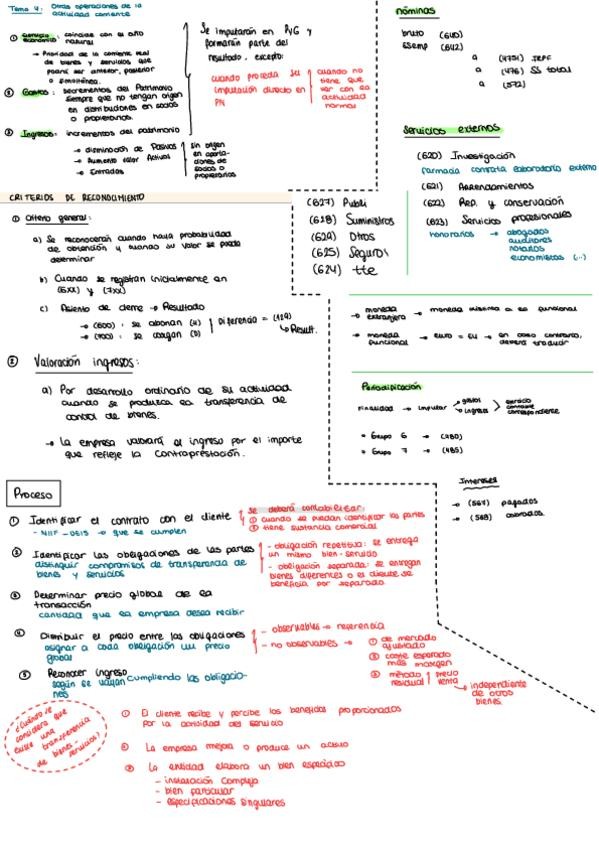 Tema 4: Otras operaciones de la
actividad corriente
① Ejercicio económico: coincide con el año
natural
→ Prioridad de la corriente real
de bienes y servicios que
podrá ser anterior, posterior
o simultánea.
② Gastos: decrementos del Patrimonio
siempre que no tengan origen
en distribuciones en socios
o propietarios.
③ Ingresos: incrementos del patrimonio
→ disminución de Pasivos
→ Aumento valor Activos
→ Entradas
sin origen
en aporta-
ciones de
socios o
propietarios
Se imputarán en PyG y
formarán parte del
resultado, excepto:
cuando proceda su
imputación directa en
PN
cuando no
tiene que
ver con la
actividad
normal
nóminas
bruto (640)
SSemp (642)
a (4751) IRPF
a (476) SS total
a (572)
Servicios externos
(620) Investigación
farmacia contrata laboratorio externo
(621) Arrendamientos
(622) Rep. y conservación
(623) Servicios profesionales
honorarios → abogados
auditores
notarios
economistas (...)
(627) Publi
(628) Suministros
(629) Otros
(625) Seguros
(624) tte
CRITERIOS DE RECONOCIMIENTO
① Criterio general:
a) Se reconocerán cuando haya probabilidad
de obtención y cuando su valor se pueda
determinar
b) Cuando se registran inicialmente en
(6XX) y (7XX)
c) Asiento de cierre → Resultado
→ (600): se abonan (H)
→ (700): se cargan (D)
Diferencia = (129)
↳ Result.
② Valoración ingresos:
a) Por desarrollo ordinario de su actividad
cuando se produzca la transferencia de
control de bienes.
→ La empresa valorará el ingreso por el importe
que refleje la contraprestación.
moneda extranjera → moneda distinta a la funcional
moneda funcional → euro = EU → en caso contrario,
deberá traducir
Periodificación
Finalidad → imputar
→ gastos
→ ingresos
ejercicio
corriente
correspondiente
• Grupo 6 → (480)
• Grupo 7 → (485)
Intereses
→ (569) pagados
→ (569) cobrados
Proceso
① Identificar el contrato con el cliente
- NIIF → que se cumplen
Se deberá contabilizar:
① cuando se puedan identificar las partes
② tiene sustancia comercial
② Identificar las obligaciones de las partes
distinguir compromisos de transferencia de
bienes y servicios
- obligación repetitiva: se entrega
un mismo bien-servicio
- obligación separada: se entregan
bienes diferentes o el cliente se
beneficia por separado
③ Determinar precio global de la
transacción
cantidad que la empresa desea recibir
④ Distribuir el precio entre las obligaciones
asignar a cada obligación un precio
global
- observables → referencia
- no observables →
① de mercado
ajustado
② coste esperado
más margen
③ método
residual
precio
venta
→ independiente
de otros
bienes.
⑤ Reconocer ingreso
según se vayan cumpliendo las obligacio-
nes
¿Cuándo se
considera que
existe una
transferencia
de bienes-
servicios?
① El cliente recibe y percibe los beneficios proporcionados
por la actividad del servicio
② La empresa mejora o produce un activo
③ La entidad elabora un bien específico
- instalación compleja
- bien particular
- especificaciones singulares